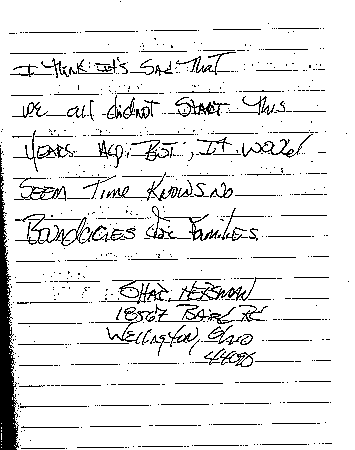 I think it's sad that
we all did not start this
years ago. But, it would
seem time knows no
Boundaries for Families.
18567
Wellington, Ohio
44090